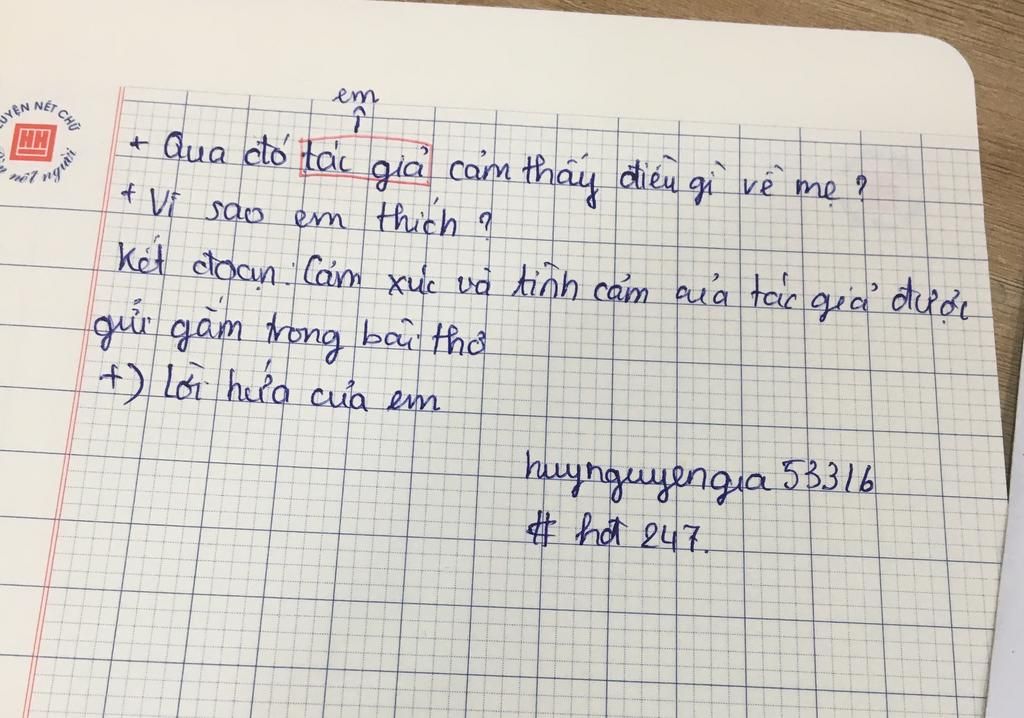 em
+ Qua đó tác giả cảm thấy điều gì về mẹ ?
+ Vì sao em thích ?
Kết đoạn: Cảm xúc và tình cảm của tác giả được
gửi gắm trong bài thơ
+) Lời hứa của em
huynguyengia 53316
# hđ 247.
LUYỆN NÉT CHỮ
HN
nét người